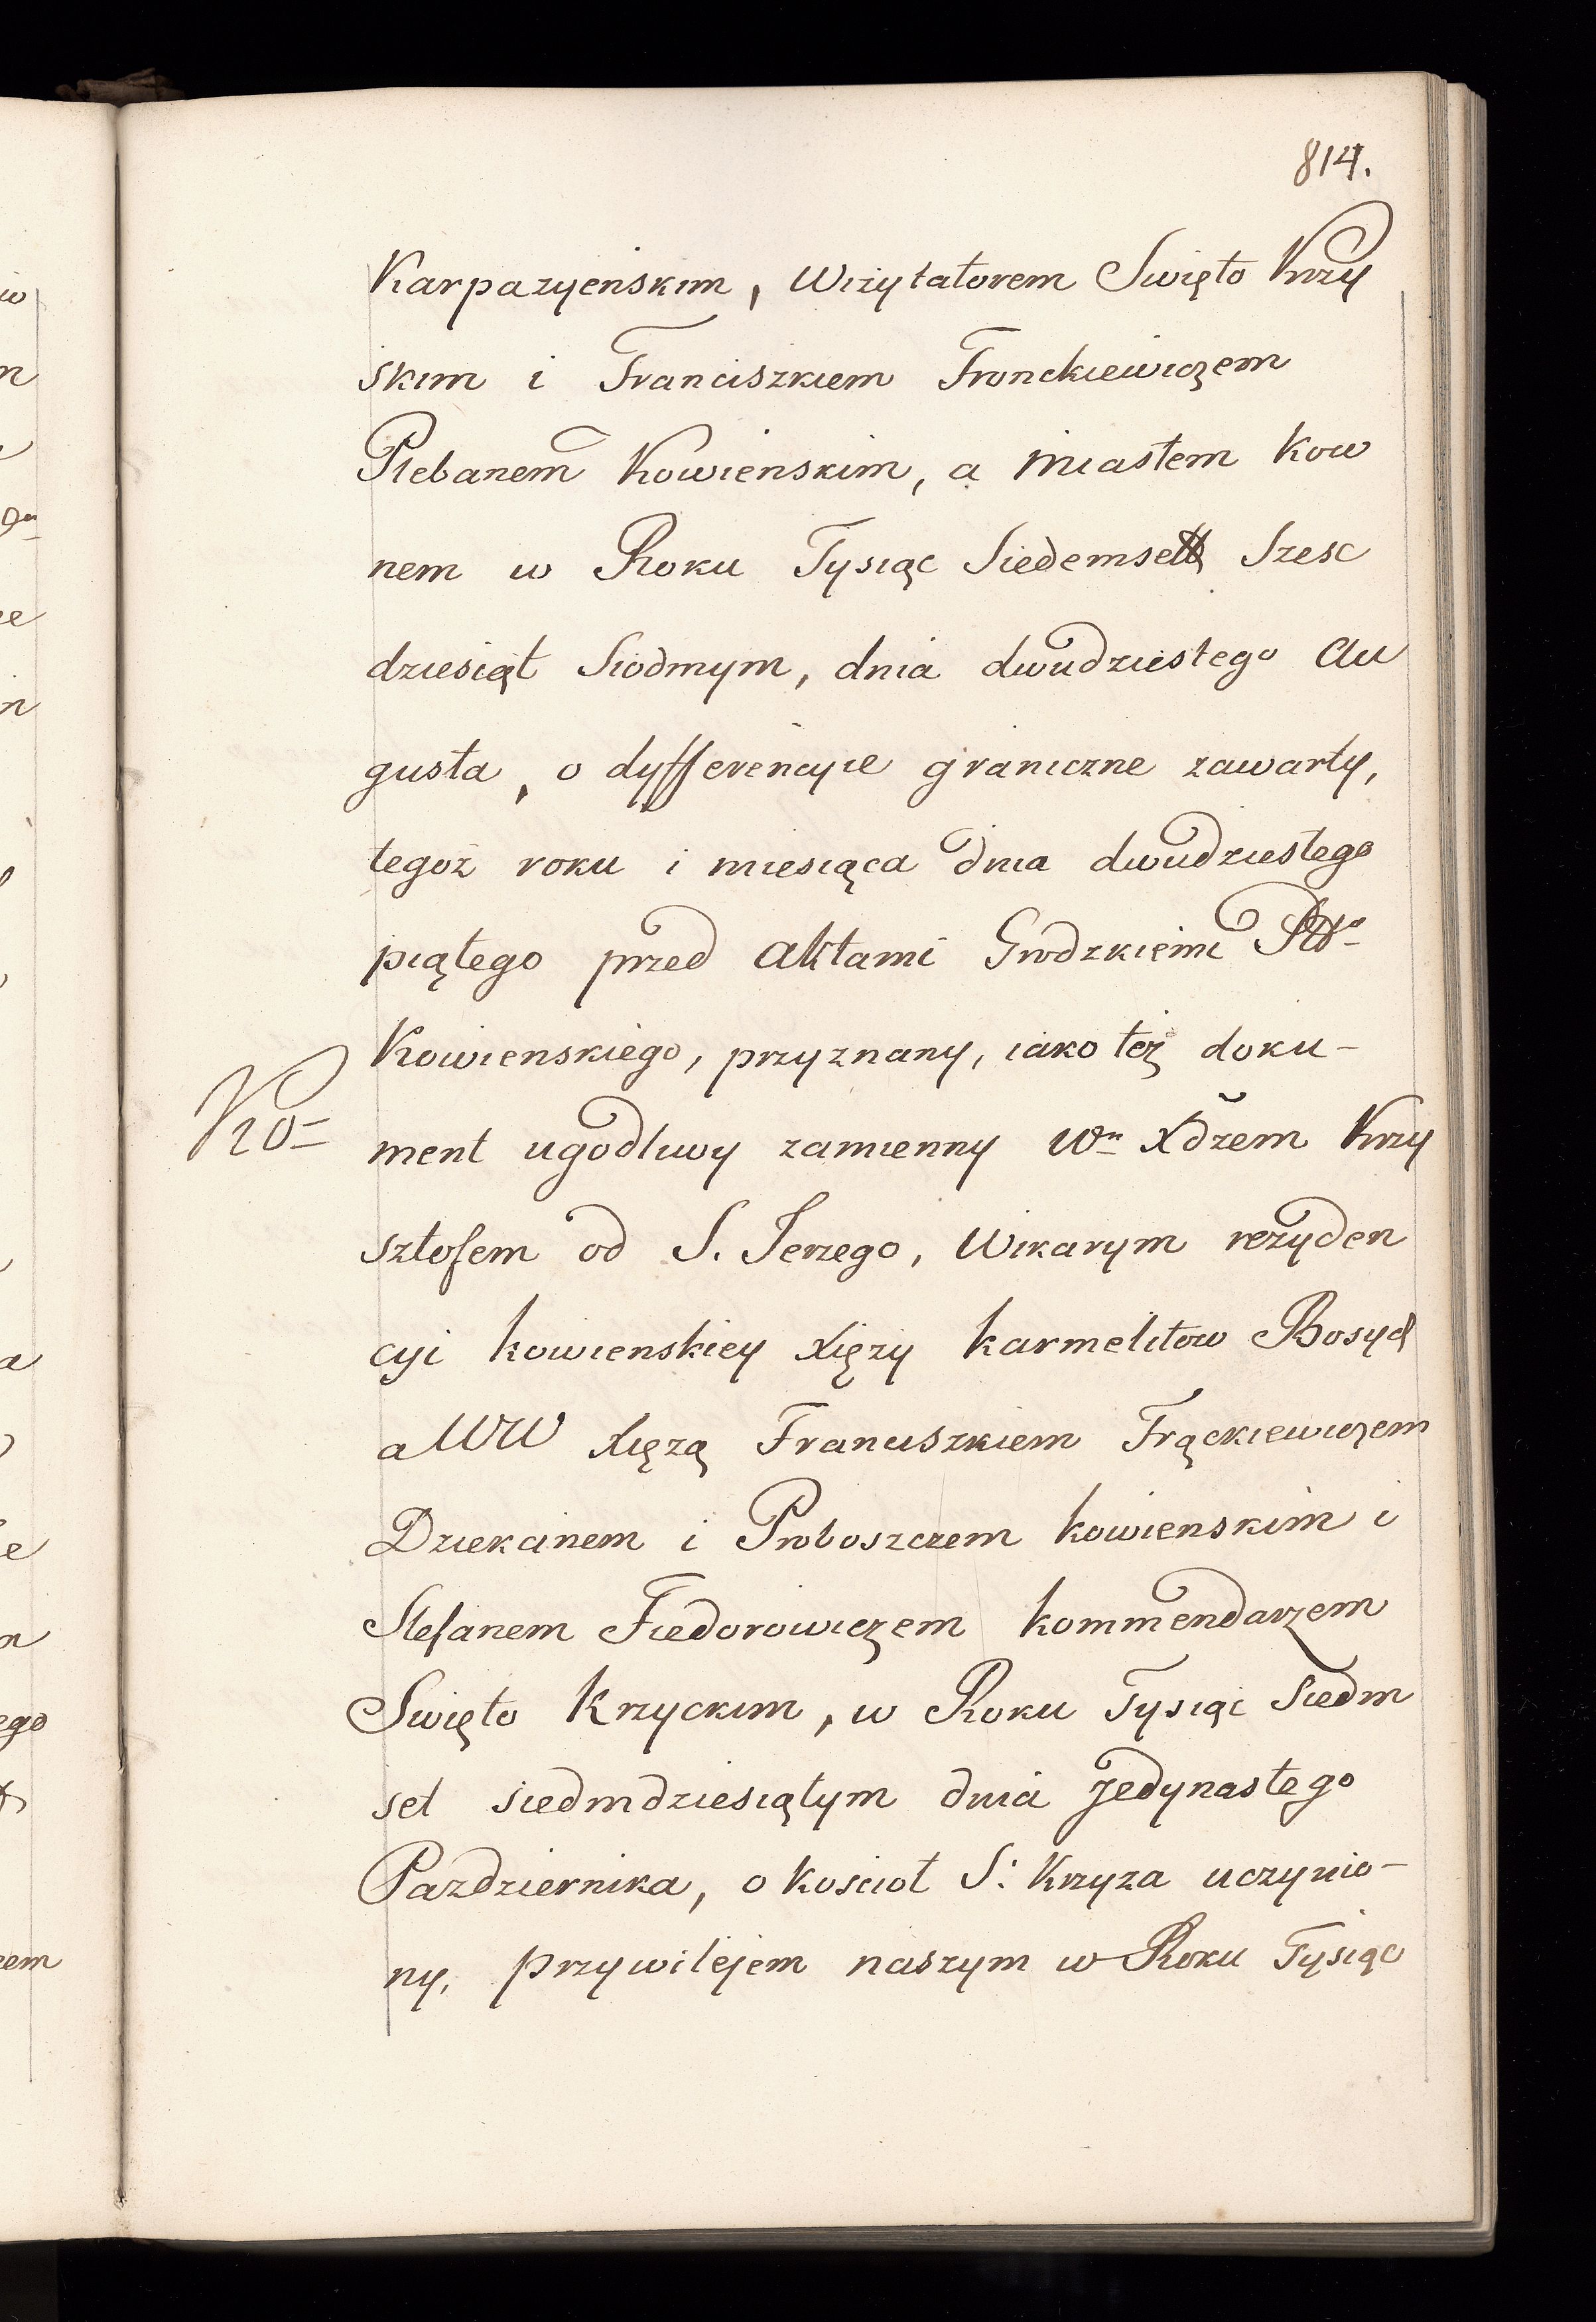 814.
Karpazyenskim, Wizytatorem Swięto Krzy
skim i Franciszkiem Fronckiewiczem
Plebanem Kowienskim, a miastem Kow
nem w Roku Tysiąc Siedemset Szesc
dziesiąt Siodmym, dnia dwudziestego Au
gusta, o dyfferencyie graniczne zawarty,
tegoż roku i miesiąca dnia dwudziestego
piątego przed Aktami Grodzkiemi
Kowienskiego, przyznany, iako też doku-
ment ugodliwy zamienny Wm Xdzem Krzy
sztofem od S. Jerzego, Wikarym rezyden
cyi kowienskiey Xięży karmelitow Bosych
a WW Xięzą Franciszkiem Frąckiewiczem
Dziekanem i Proboszczem kowienskim i
Stefanem Fiedorowiczem kommendarzem
Swięto Krzyckim, w Roku Tysiąc Siedm
set siedmdziesiątym dnia Jedynastego
Pazdziernika, o Koscioł S: Krzyza uczynio-
ny, przywilejem naszym w Roku Tysiąc